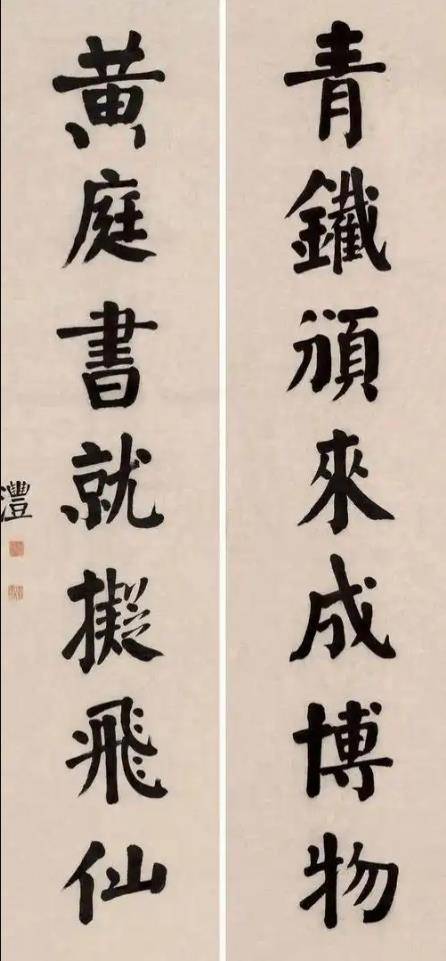 青鐵頒來成博物
黃庭書就擬飛仙
灃